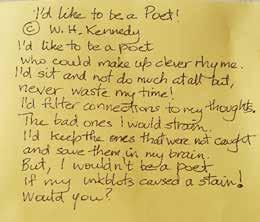 I'd like to be a Poet!
© W. H. Kennedy
I'd like to be a poet
who could make up clever rhyme.
I'd sit and not do much at all but,
never waste my time!
I'd filter connections to my thoughts.
The bad ones I would strain.
I'd keep the ones that were not caught
and save them in my brain.
But, I wouldn't be a poet
if my inkblots caused a stain!
Would you?